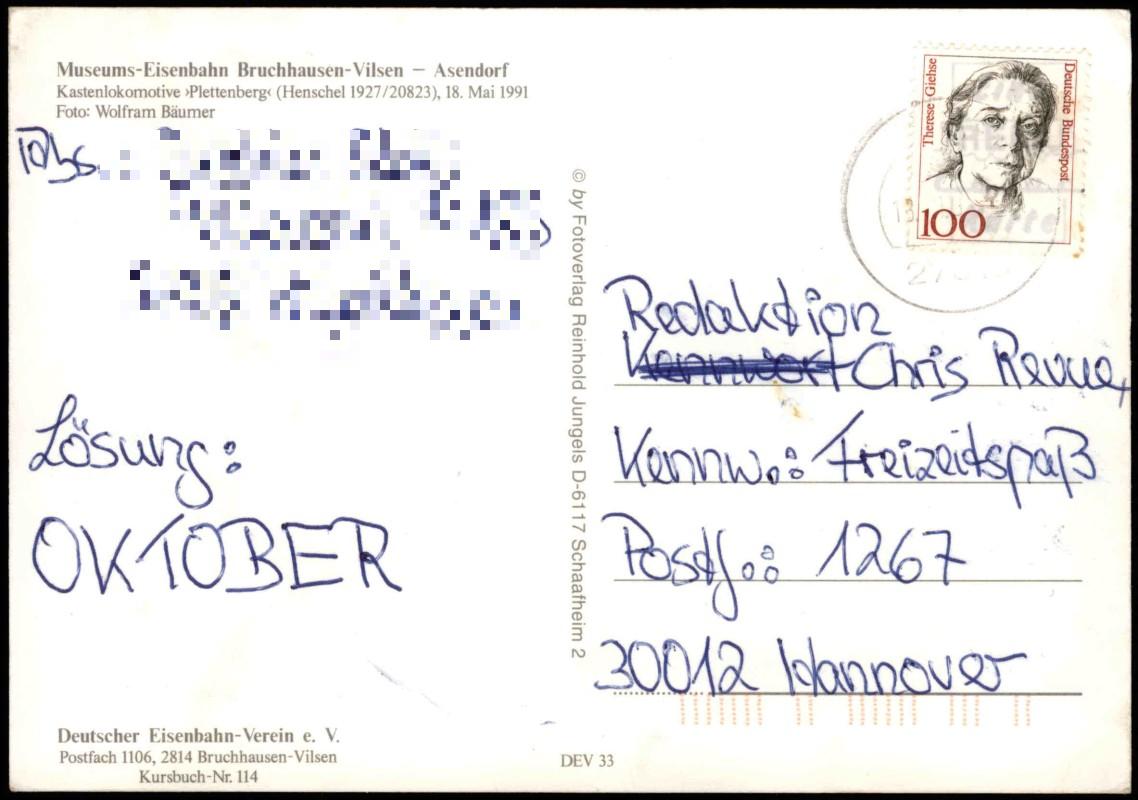 Museums-Eisenbahn Bruchhausen-Vilsen – Asendorf
Kastenlokomotive ›Plettenberg‹ (Henschel 1927/20823), 18. Mai 1991
Foto: Wolfram Bäumer
Abs.
Lösung:
OKTOBER
Deutscher Eisenbahn-Verein e. V.
Postfach 1106, 2814 Bruchhausen-Vilsen
Kursbuch-Nr. 114
DEV 33
© by Fotoverlag Reinhold Jungels D-6117 Schaafheim 2
Therese Giehse
Deutsche Bundespost
100
Redaktion
Kennwort Chris Revue,
Kennw.: Freizeitspaß
Postf.: 1267
30012 Hannover